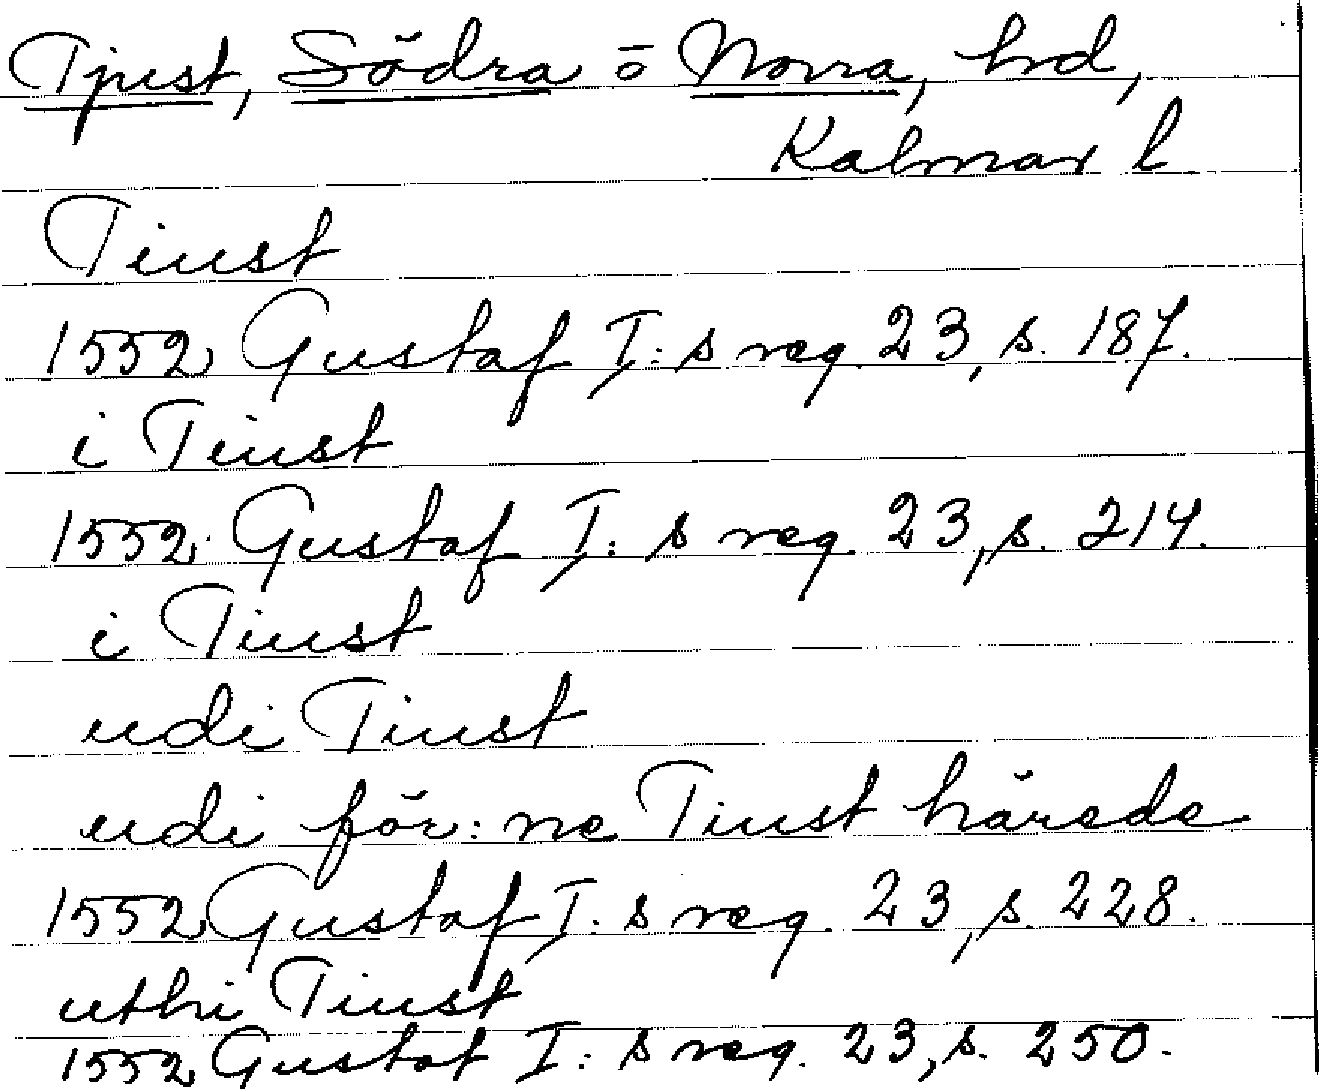 Tjust, Södra o Norra, hd,
Kalmar l
Tiust
1552 Gustaf I:s reg. 23, s. 187.
i Tiust
1552 Gustaf I:s reg. 23, s. 214.
i Tiust
udi Tiust
udi för:ne Tiust härede
1552 Gustaf I:s reg. 23, s. 228.
uthi Tiust
1552 Gustaf I:s reg. 23, s. 250.